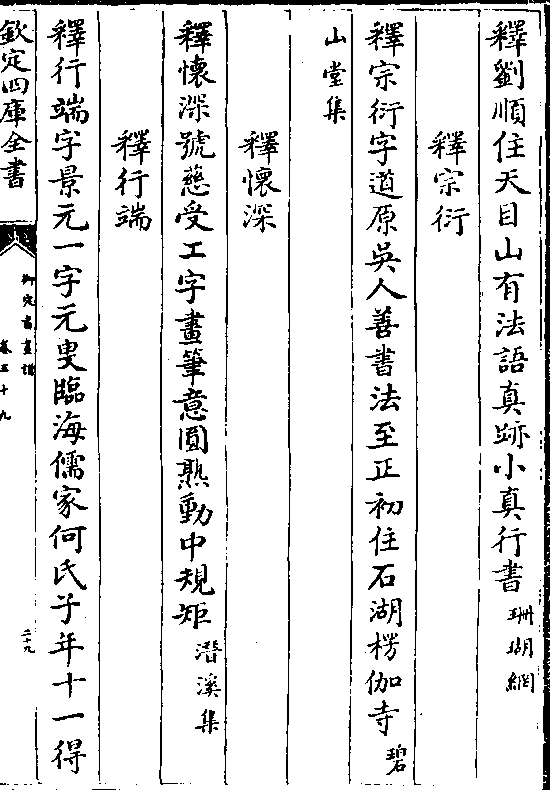 釋劉順住天目山有法語真跡小真行書珊瑚網
釋宗衍
釋宗衍字道原吳人善書法至正初住石湖楞伽寺碧
山堂集
釋懷深
釋懷深號慈受工字畫筆意圓熟動中規矩潛溪集
釋行端
釋行端字景元一字元叟臨海儒家何氏子年十一得
欽定四庫全書
御定書畫譜
卷五十九
二十九